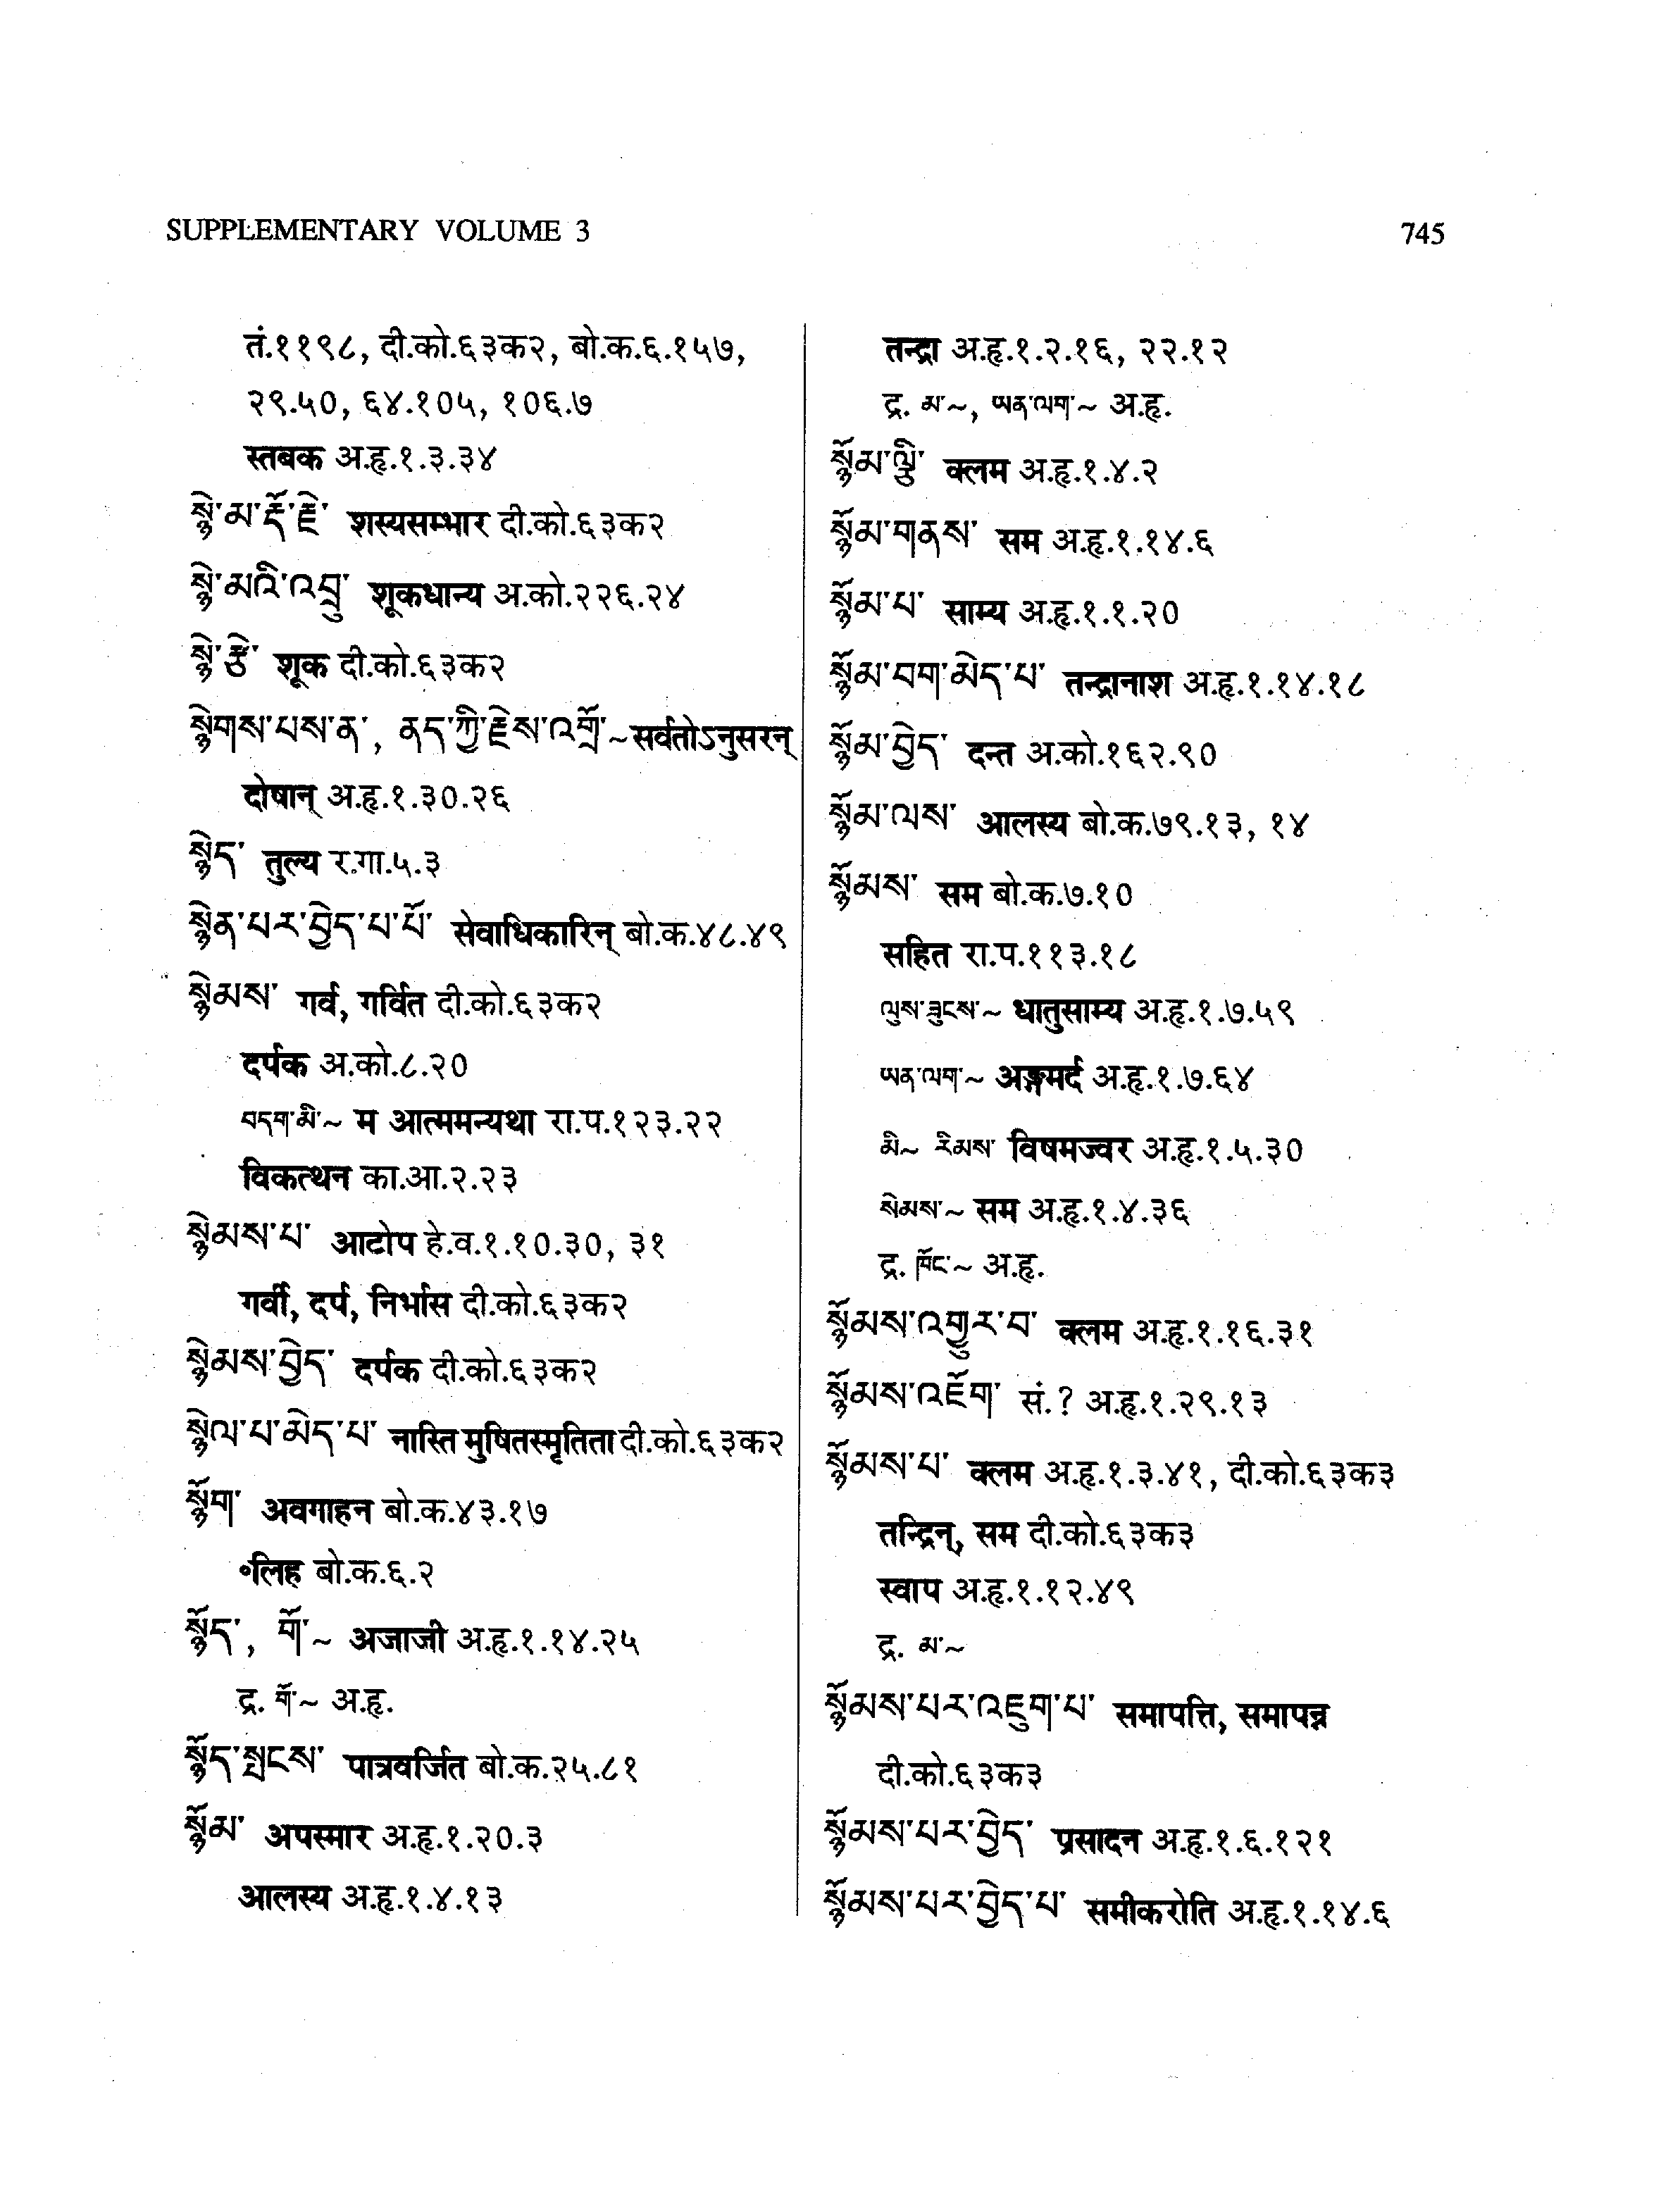 SUPPLEMENTARY VOLUME 3
745
तं.११९८, दी.को.६३क२, बो.क.६.१५७,
२९.५०, ६४.१०५, १०६.७
स्तबक अ.हृ.१.३.३४
སྙེ་མ་རྡོ་རྗེ་ शस्यसम्भार दी.को.६३क२
སྙེ་མའི་འབྲུ་ शूकधान्य अ.को.२२६.२४
སྙེ་རྩེ་ शूक दी.को.६३क२
སྙེགས་པས་ན་, ནད་ཀྱི་རྗེས་འགྲོ་~सर्वतोऽनुसरन्
दोषान् अ.हृ.१.३०.२६
སྙེད་ तुल्य र.गा.५.३
སྙེན་པར་བྱེད་པ་པོ་ सेवाधिकारिन् बो.क.४८.४९
སྙེམས་ गर्व, गर्वित दी.को.६३क२
दर्पक अ.को.८.२०
བདག་མི་~ म आत्ममन्यथा रा.प.१२३.२२
विकत्थन का.आ.२.२३
སྙེམས་པ་ आटोप हे.व.१.१०.३०, ३१
गर्वी, दर्प, निर्भास दी.को.६३क२
སྙེམས་བྱེད་ दर्पक दी.को.६३क२
སྙེལ་པ་མེད་པ་ नास्ति मुषितस्मृतिता दी.को.६३क२
སྙོག་ अवगाहन बो.क.४३.१७
॰लिह बो.क.६.२
སྙོད་, གོ་~ अजाजी अ.हृ.१.१४.२५
द्र. གོ་~ अ.हृ.
སྙོད་སྤངས་ पात्रवर्जित बो.क.२५.८१
སྙོམ་ अपस्मार अ.हृ.१.२०.३
आलस्य अ.हृ.१.४.१३
तन्द्रा अ.हृ.१.२.१६, २२.१२
द्र. མ་~, ཡན་ལག་~ अ.हृ.
སྙོམ་ལྕི་ क्लम अ.हृ.१.४.२
སྙོམ་གནས་ सम अ.हृ.१.१४.६
སྙོམ་པ་ साम्य अ.हृ.१.१.२०
སྙོམ་བག་མེད་པ་ तन्द्रानाश अ.हृ.१.१४.१८
སྙོམ་བྱེད་ दन्त अ.को.१६२.९०
སྙོམ་ལས་ आलस्य बो.क.७९.१३, १४
སྙོམས་ सम बो.क.७.१०
सहित रा.प.११३.१८
ལུས་ཟུངས་~ धातुसाम्य अ.हृ.१.७.५९
ཡན་ལག་~ अङ्गमर्द अ.हृ.१.७.६४
མི~ རིམས་ विषमज्वर अ.हृ.१.५.३०
སེམས་~ सम अ.हृ.१.४.३६
द्र. ཁོང་~ अ.हृ.
སྙོམས་འགྱུར་བ་ क्लम अ.हृ.१.१६.३१
སྙོམས་འཇོག་ सं.? अ.हृ.१.२९.१३
སྙོམས་པ་ क्लम अ.हृ.१.३.४१, दी.को.६३क३
तन्द्रिन्, सम दी.को.६३क३
स्वाप अ.हृ.१.१२.४९
द्र. མ་~
སྙོམས་པར་འཇུག་པ་ समापत्ति, समापन्न
दी.को.६३क३
སྙོམས་པར་བྱེད་ प्रसादन अ.हृ.१.६.१२१
སྙོམས་པར་བྱེད་པ་ समीकरोति अ.हृ.१.१४.६